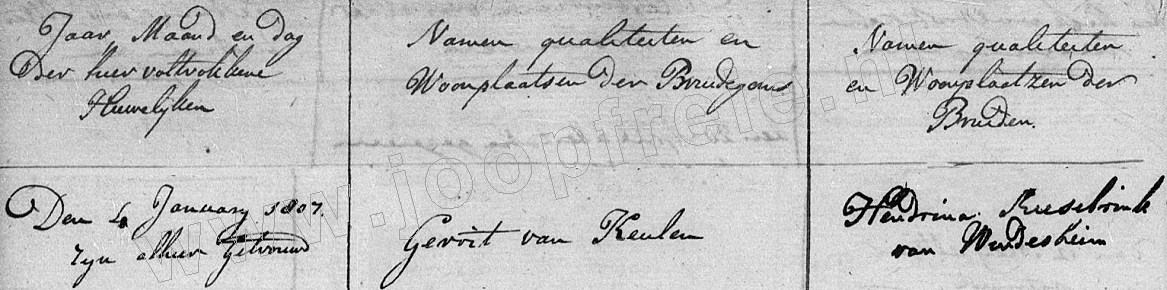 Jaar, Maand en dag
Der hier voltrokkene
Huwelijken
Namen qualiteiten en
Woonplaatsen der Bruidegoms
Namen qualiteiten
en Woonplaatzen der
Bruiden.
Den 4 January 1807.
zyn alhier getrouwd
Gerrit van Keulen
Hendrina
van Windesheim
www.joopfrere.n